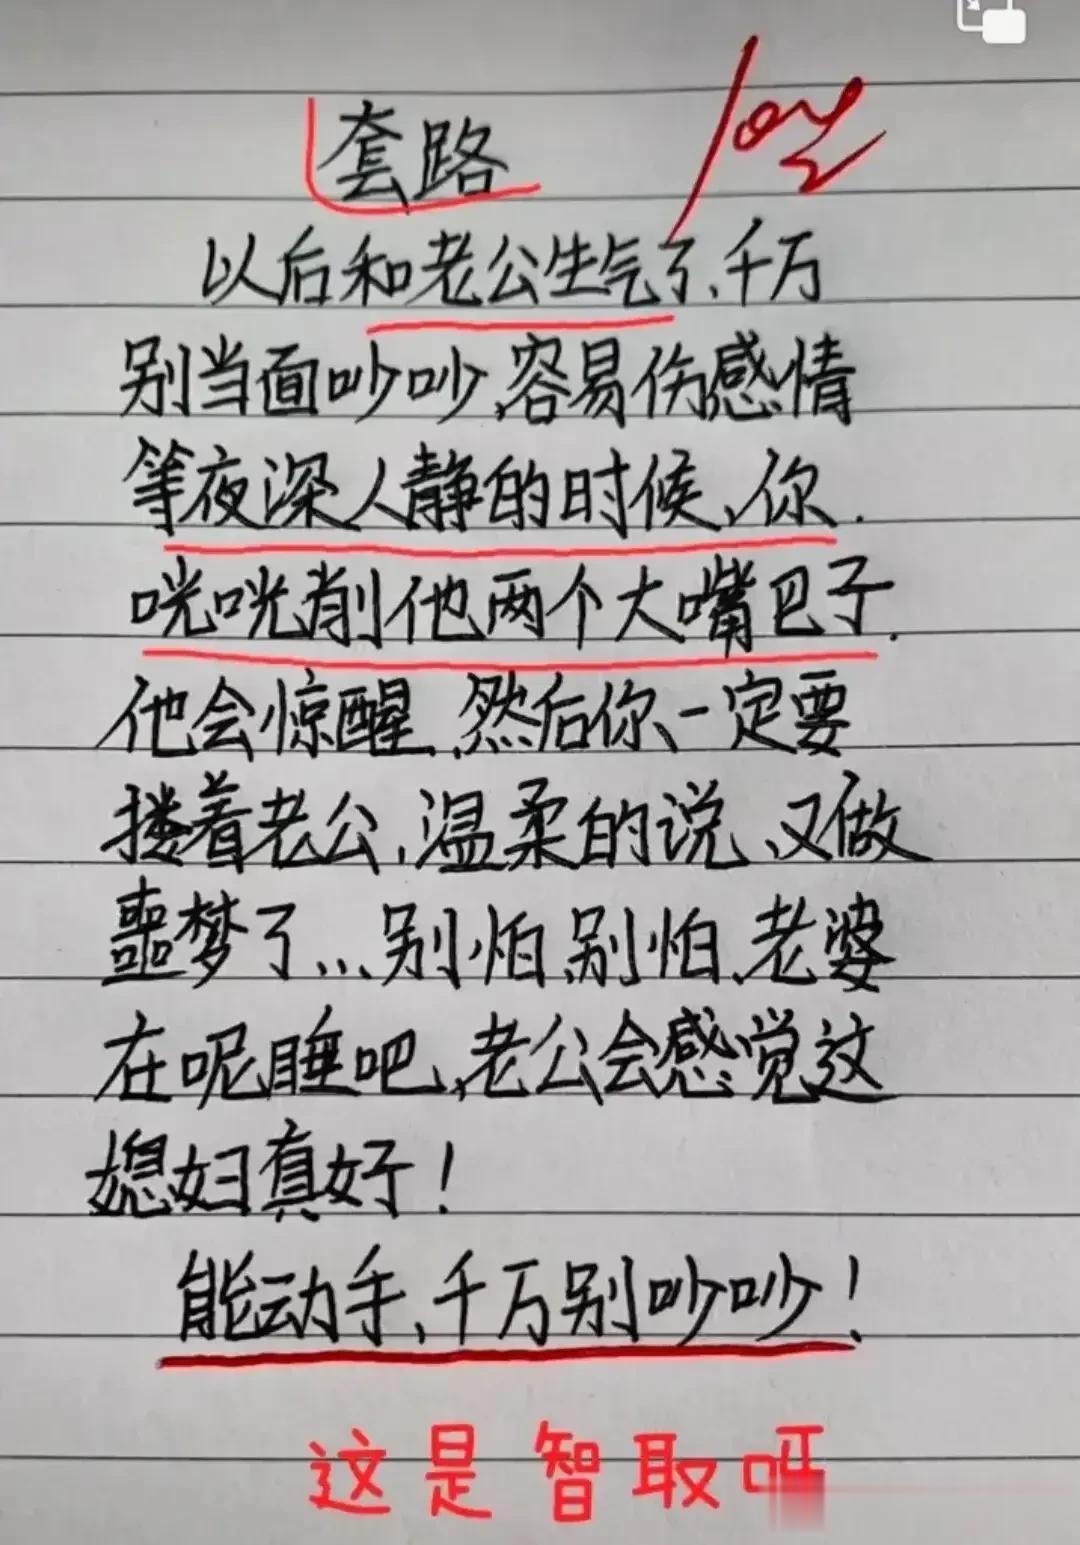 套路
love
以后和老公生气了、千万
别当面吵吵,容易伤感情
等夜深人静的时候、你.
咣咣削他两个大嘴巴子.
他会惊醒、然后你一定要
搂着老公,温柔的说、又做
噩梦了...别怕、别怕、老婆
在呢睡吧,老公会感觉这
媳妇真好!
能动手、千万别吵吵!
这是智取呀